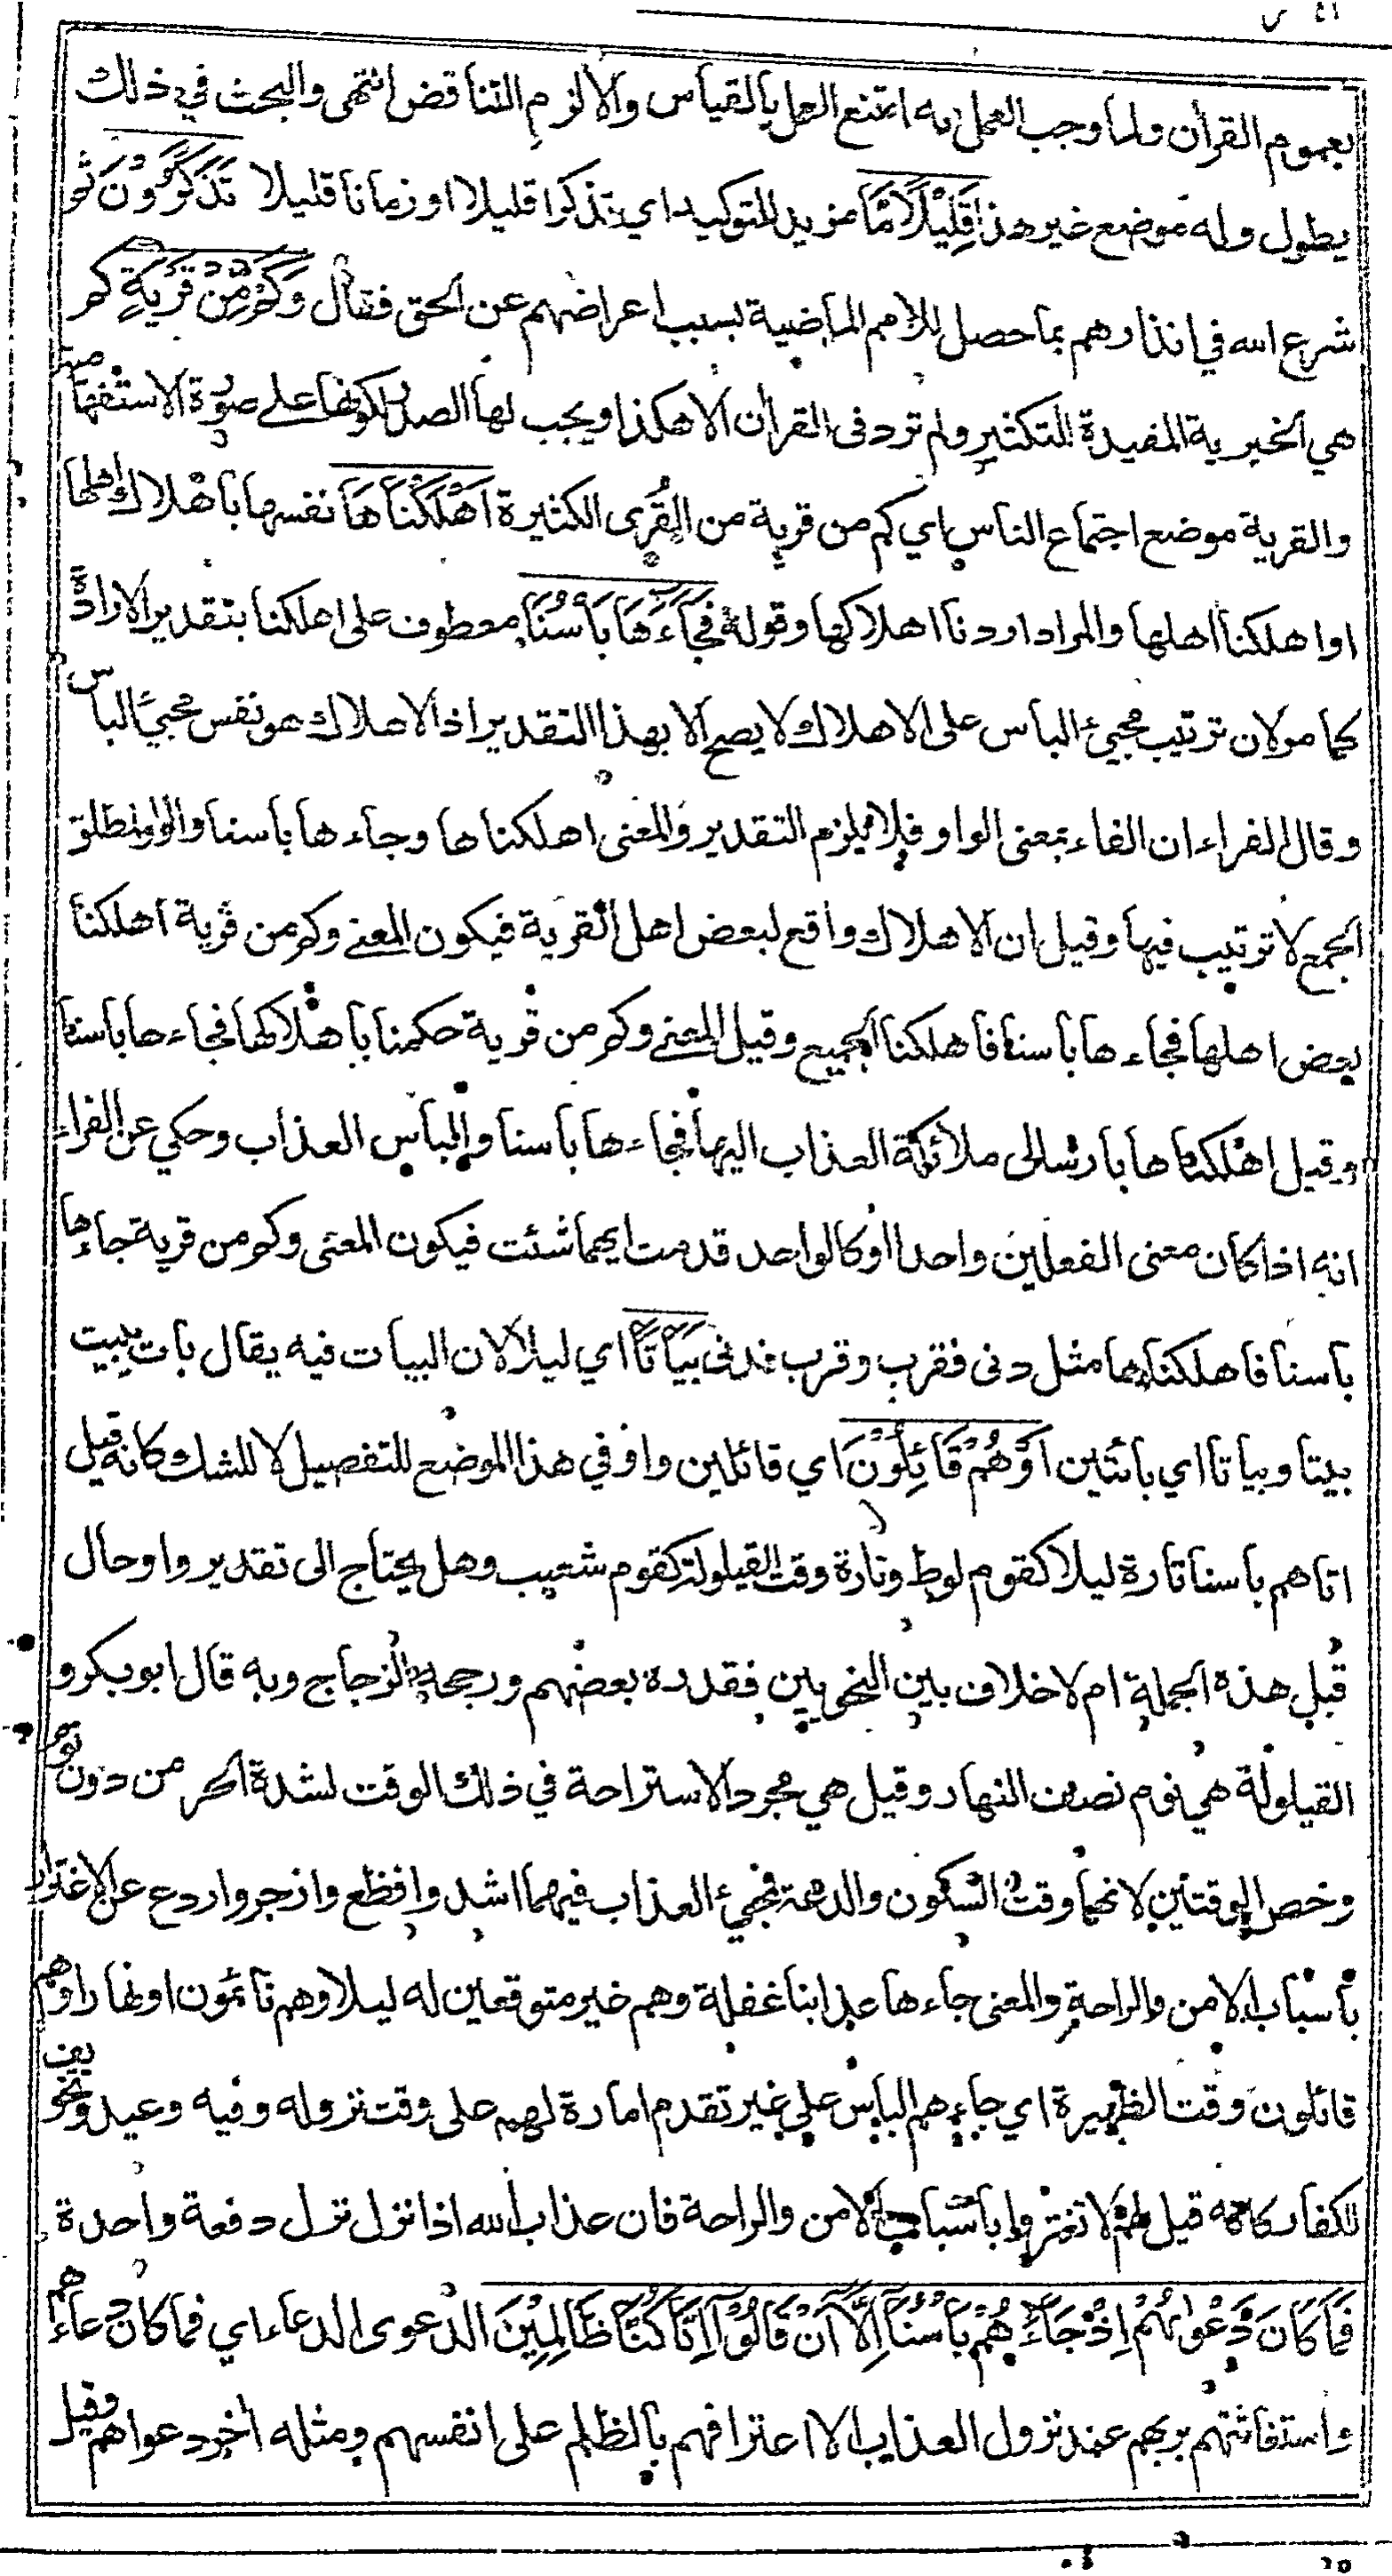 بعموم القرأن ولما وجب العمل به امتنع العمل بالقياس والا لزم التناقض انتهى والبحث في ذلك
يطول وله موضع غير هذا قَلِيْلًا مَّا مزيد للتوكيد اي تذكرا قليلا او زمانا قليلا تَذَكَّرُوْنَ ثم
شرع الله في انذارهم بما حصل للامم الماضية بسبب اعراضهم عن الحق فقال وَكَمْ مِّنْ قَرْيَةٍ كم
هي الخبرية المفيدة للتكثير ولم ترد في القرأن الا هكذا ويجب لها الصدر لكونها على صورة الاستفهامية
والقرية موضع اجتماع الناس اي كم من قرية من القُرى الكثيرة اَهْلَكْنَاهَا نفسها باهلاك اهلها
او اهلكنا اهلها والمراد اردنا اهلاكها وقوله فَجَاءَهَا بَأْسُنَا معطوف على اهلكنا بتقدير الارادة
كما مر لان ترتيب مجيئ البأس على الاهلاك لا يصح الا بهذا التقدير اذ الاهلاك هو نفس مجيئ البأس
وقال الفراء ان الفاء بمعنى الواو فلا يلزم التقدير والمعنى اهلكناها وجاءها بأسنا والواو لمطلق
الجمع لا ترتيب فيها وقيل ان الاهلاك واقع لبعض اهل القرية فيكون المعنے وكم من قرية اهلكنا
بعض اهلها فجاءها بأسنا فاهلكنا الجميع وقيل المعنے وكم من قرية حكمنا باهلاكها فجاءها بأسنا
وقيل اهلكناها بارسالى ملائكة العذاب اليها فجاءها بأسنا والبأس العذاب وحكي عن الفراء
انه اذا كان معنى الفعلين واحدا او كالواحد قدمت ايهما شئت فيكون المعنى وكم من قرية جاءها
بأسنا فاهلكناها مثل دنى فقرب وقرب فدنى بَيَاتًا اي ليلا لان البيات فيه يقال بات يبيت
بيتا وبياتا اي بائتين اَوْ هُمْ قَائِلُوْنَ اي قائلين واو في هذا الموضع للتفصيل لا للشك كانه قيل
اتاهم بأسنا تارة ليلا كقوم لوط وتارة وقت القيلولة كقوم شعيب وهل يحتاج الى تقدير واو حال
قبل هذه الجملة ام لا خلاف بين النحويين فقدره بعضهم ورجحه الزجاج وبه قال ابو بكر و
القيلولة هي نوم نصف النهار وقيل هي مجرد الاستراحة في ذلك الوقت لشدة الحر من دون نوم
وخص الوقتين لانهما وقت السكون والدعة فمجيئ العذاب فيهما اشد وافظع وازجر واردع عن الاغترار
بأسباب الامن والراحة والمعنى جاءها عذابنا غفلة وهم غير متوقعين له ليلا وهم نائمون او نهارا وهم
قائلون وقت الظهيرة اي جاءهم البأس على غير تقدم امارة لهم على وقت نزوله وفيه وعيد وتخويف
للكفار كانه قيل لهم لا تغتروا بأسباب الامن والراحة فان عذاب الله اذا نزل نزل دفعة واحدة
فَمَا كَانَ دَعْوٰىهُمْ اِذْ جَاءَهُمْ بَأْسُنَا اِلَّا اَنْ قَالُوْا اِنَّا كُنَّا ظَالِمِيْنَ الدعوى الدعاء اي فما كان دعاءهم
واستغاثتهم بربهم عند نزول العذاب الا اعترافهم بالظلم على انفسهم ومثله أخر دعواهم وقيل